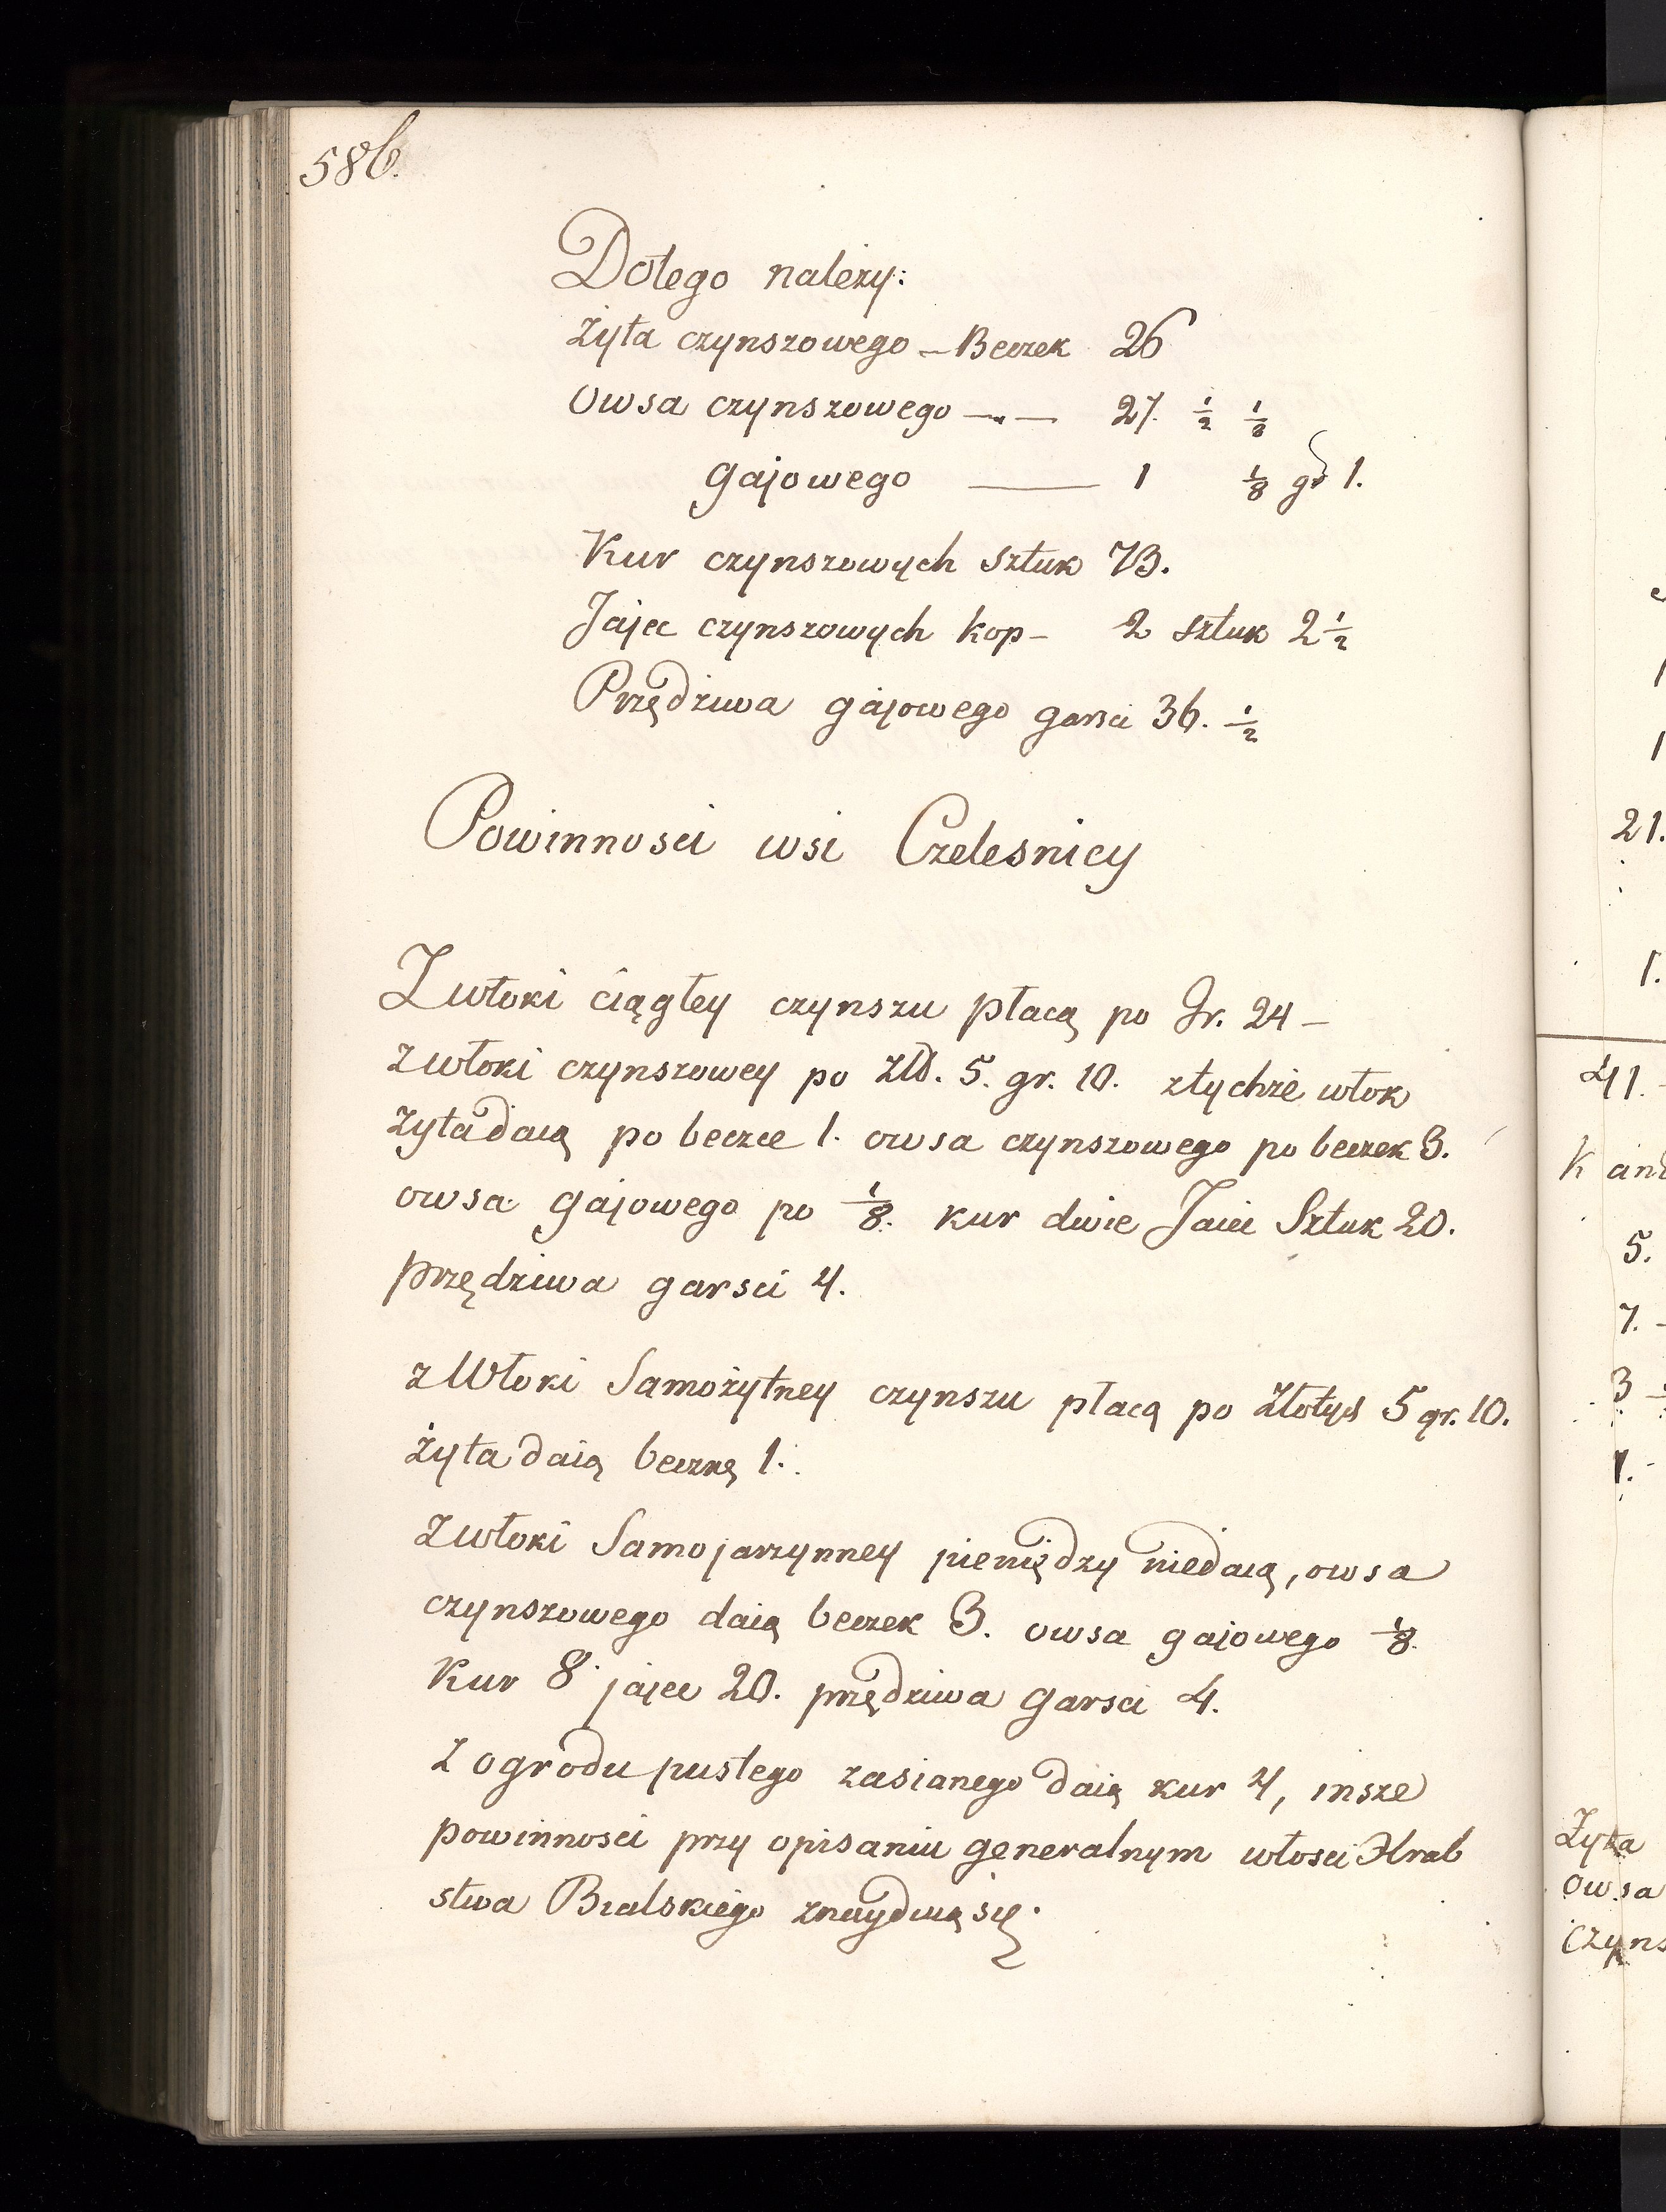 586.
Dotego należy:
Żyta czynszowego – Beczek 26
Owsa czynszowego — — 27. ½ ⅛
gajowego — 1 ⅛ gr 1.
Kur czynszowych sztuk 73.
Jajec czynszowych kop – 2 sztuk 2 ½
Przędziwa gajowego garsci 36. ½
Powinnosci wsi Czelesnicy
Z włoki ciągłey czynszu płacą po Gr. 24 –
z włoki czynszowey po Złł. 5. gr. 10. z tychże włok
żyta daią po beczce 1. owsa czynszowego po beczek 3.
owsa gajowego po ⅛. kur dwie Jaiec Sztuk 20.
przędziwa garsci 4.
z Włoki Samożytney czynszu płacą po Złotych 5 gr. 10.
żyta daią beczkę 1.
z włoki Samojarzynney pieniędzy niedaią, owsa
czynszowego daią beczek 3. owsa gajowego ⅛.
Kur 8 jajec 20. przędziwa garsci 4.
z ogrodu pustego zasianego daią kur 4, insze
powinnosci przy opisaniu generalnym włosci Hrab
stwa Bialskiego znayduią się.
21.
1.
41. –
K
5.
7. –
3
1. –
Żyta
owsa
czyns